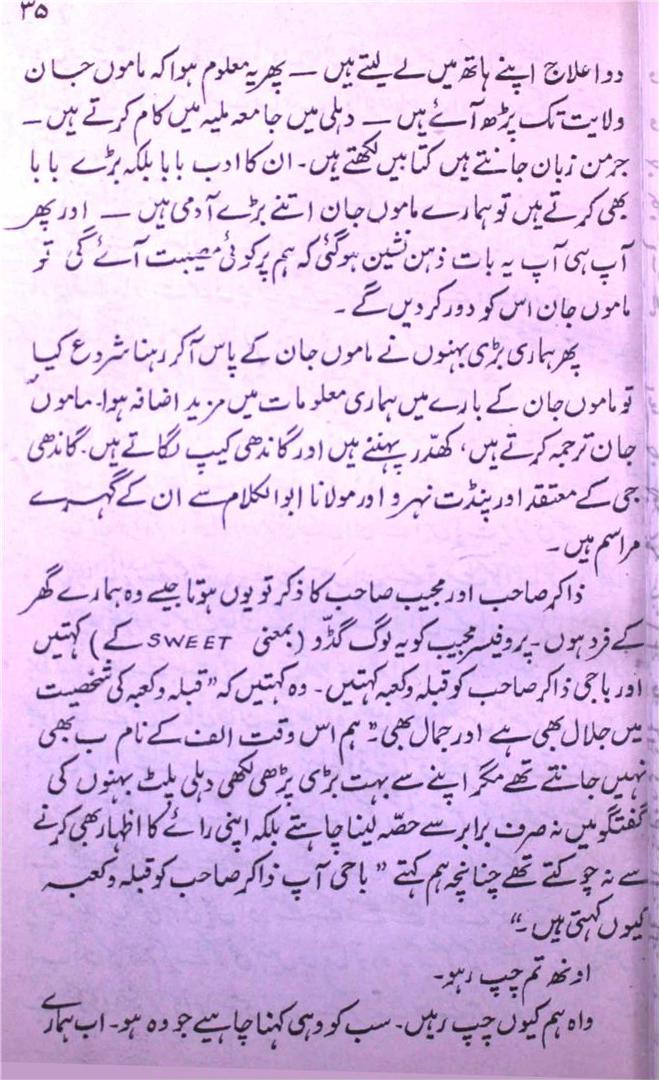 ۳۵
دوا علاج اپنے ہاتھ میں لے لیتے ہیں — پھر یہ معلوم ہوا کہ ماموں جان
ولایت تک پڑھ آئے ہیں — دہلی میں جامعہ ملیہ میں کام کرتے ہیں —
جرمن زبان جانتے ہیں کتابیں لکھتے ہیں۔ ان کا ادب بابا بلکہ بڑے بابا
بھی کرتے ہیں تو ہمارے ماموں جان اتنے بڑے آدمی ہیں — اور پھر
آپ ہی آپ یہ بات ذہن نشین ہو گئی کہ ہم پر کوئی مصیبت آئے گی تو
ماموں جان اس کو دور کر دیں گے۔
پھر ہماری بڑی بہنوں نے ماموں جان کے پاس آ کر رہنا شروع کیا
تو ماموں جان کے بارے میں ہماری معلومات میں مزید اضافہ ہوا۔ ماموں
جان ترجمہ کرتے ہیں، کھدّر پہنتے ہیں اور گاندھی کیپ لگاتے ہیں۔ گاندھی
جی کے معتقد اور پنڈت نہرو اور مولانا ابوالکلام سے ان کے گہرے
مراسم ہیں۔
ذاکر صاحب اور مجیب صاحب کا ذکر تو یوں ہوتا جیسے وہ ہمارے گھر
کے فرد ہوں۔ پروفیسر مجیب کو یہ لوگ گڈّو (بمعنی SWEET کے) کہتیں
اور باجی ذاکر صاحب کو قبلہ و کعبہ کہتیں۔ وہ کہتیں کہ ”قبلہ و کعبہ کی شخصیت
میں جلال بھی ہے اور جمال بھی“ ہم اس وقت الف کے نام ب بھی
نہیں جانتے تھے مگر اپنے سے بہت بڑی پڑھی لکھی دہلی پلٹ بہنوں کی
گفتگو میں نہ صرف برابر سے حصّہ لینا چاہتے بلکہ اپنی رائے کا اظہار بھی کرنے
سے نہ چوکتے تھے چنانچہ ہم کہتے ”باجی آپ ذاکر صاحب کو قبلہ و کعبہ
کیوں کہتی ہیں۔“
اونھ تم چپ رہو۔
واہ ہم کیوں چپ رہیں۔ سب کو وہی کہنا چاہیے جو وہ ہو۔ اب ہمارے